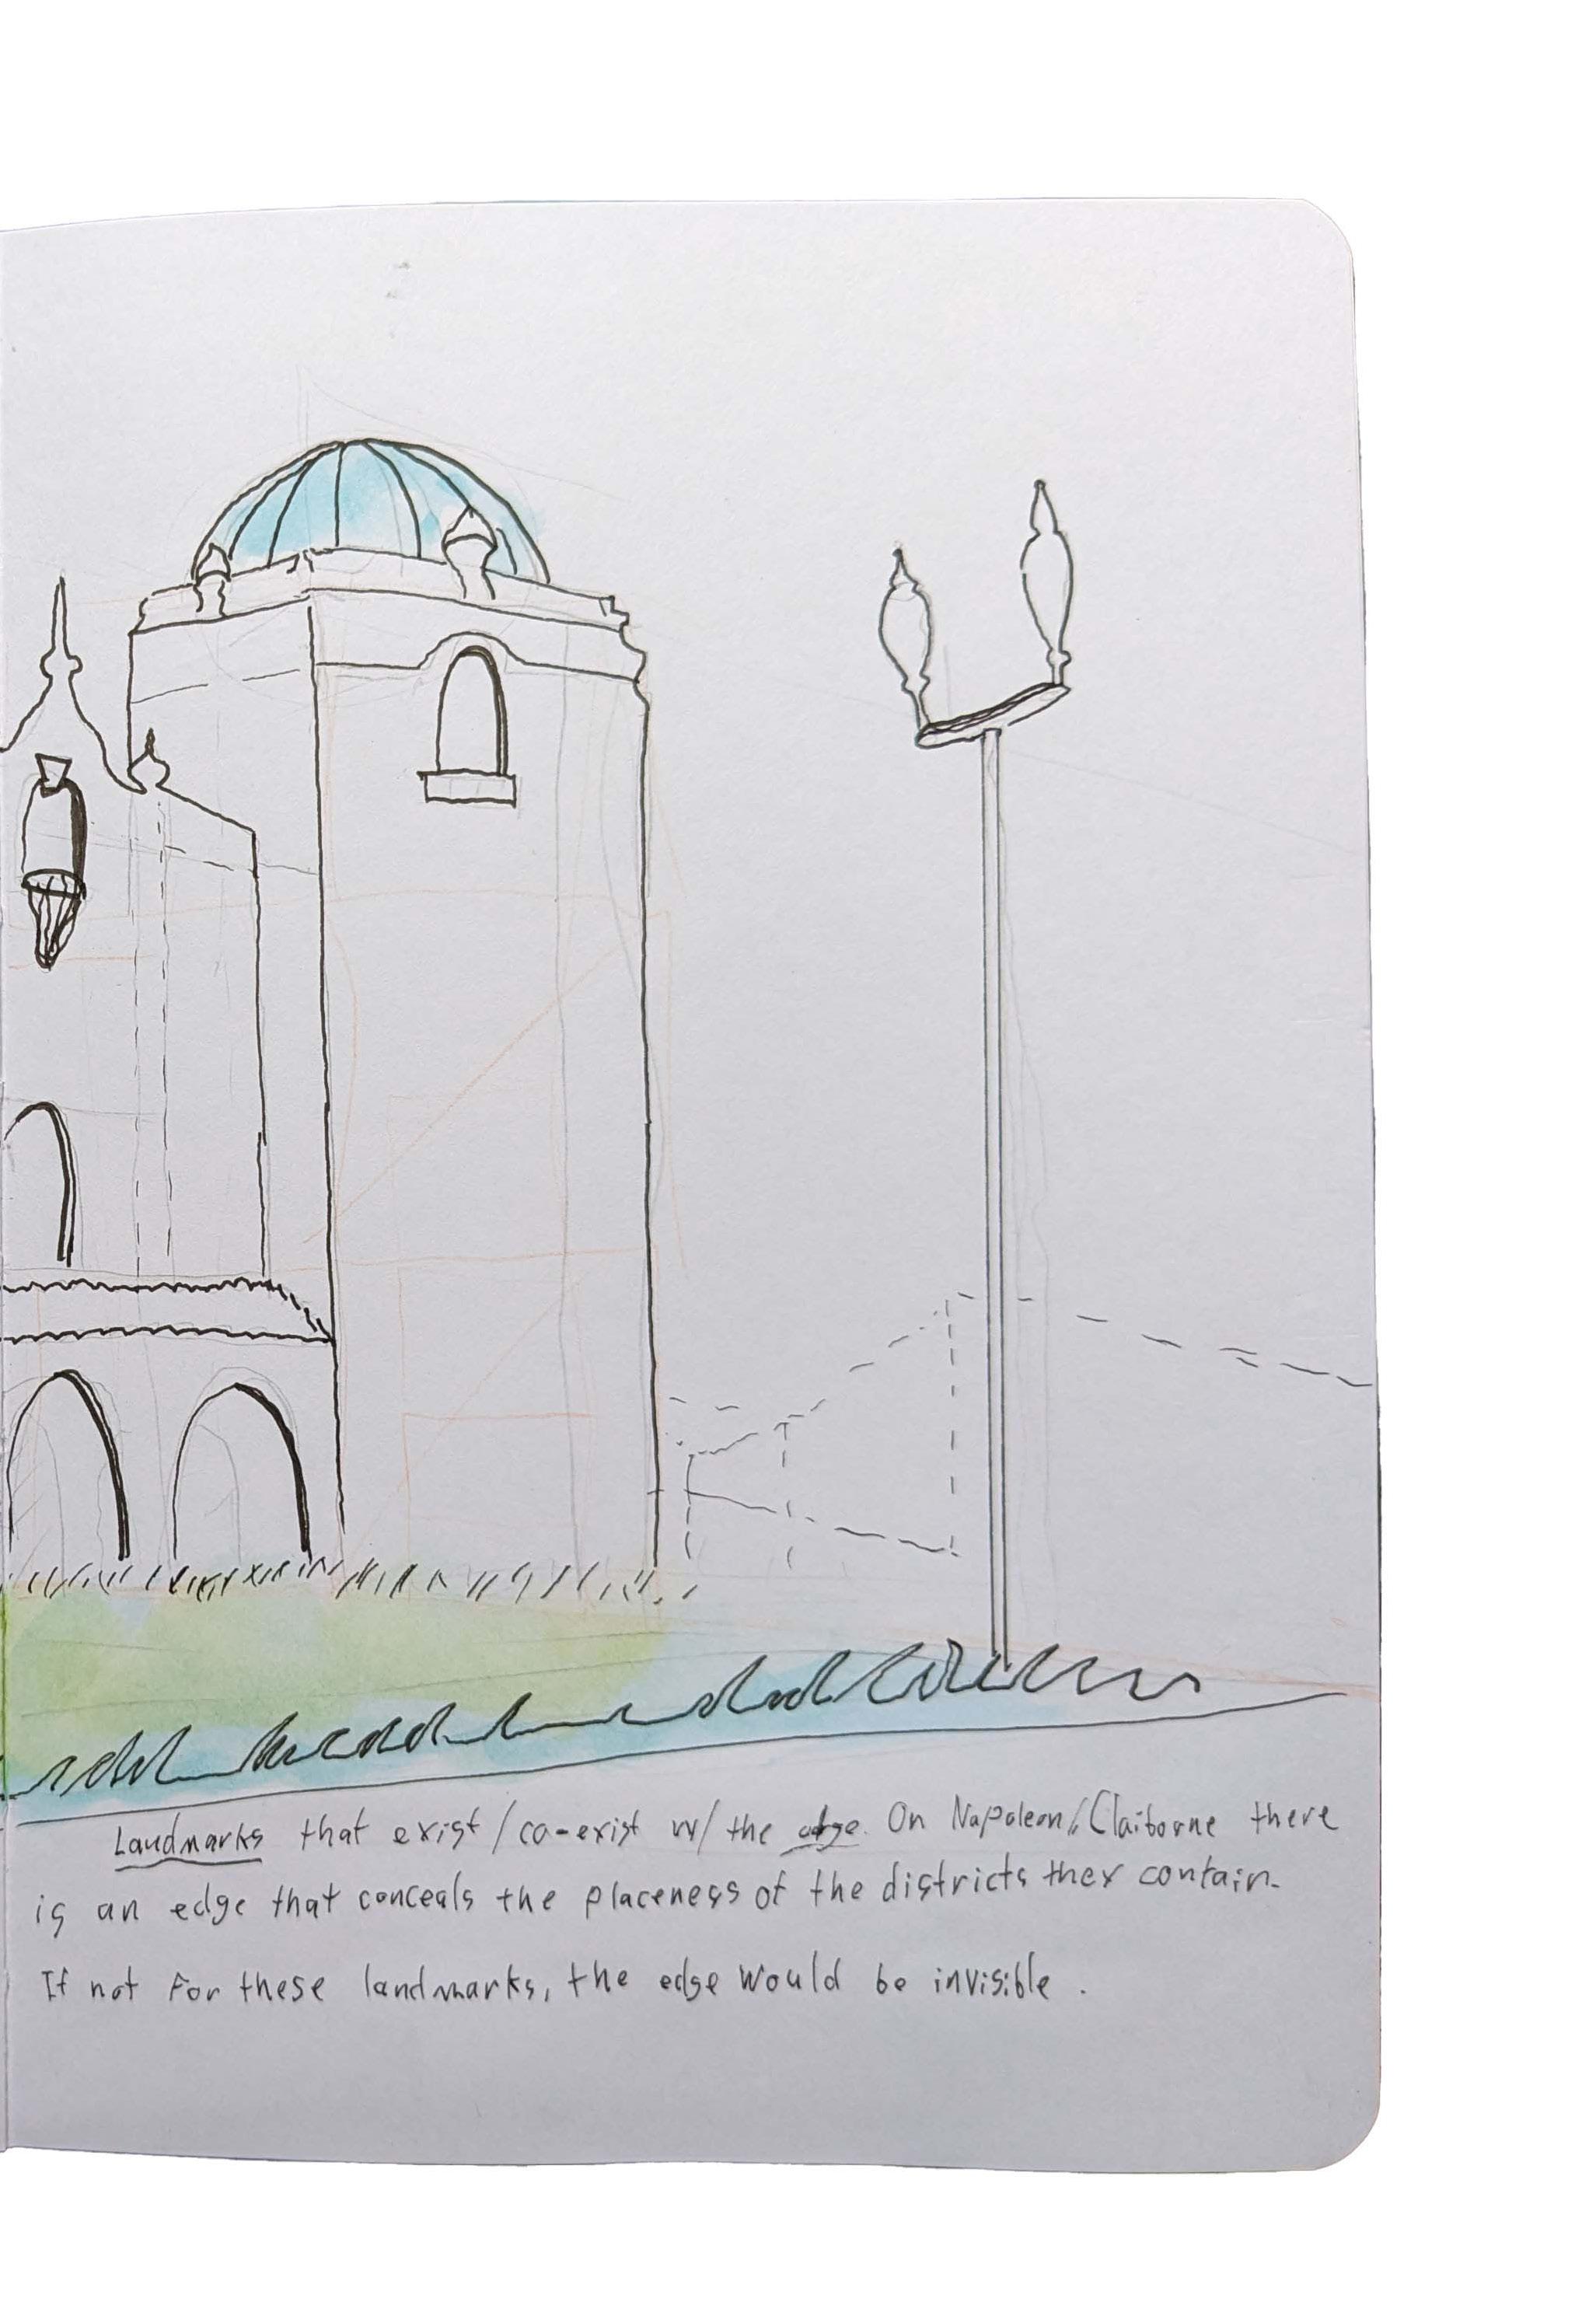 Landmarks that exist/co-exist w/ the edge. On Napoleon/Claiborne there
is an edge that conceals the placeness of the districts they contain.
If not for these landmarks, the edge would be invisible.